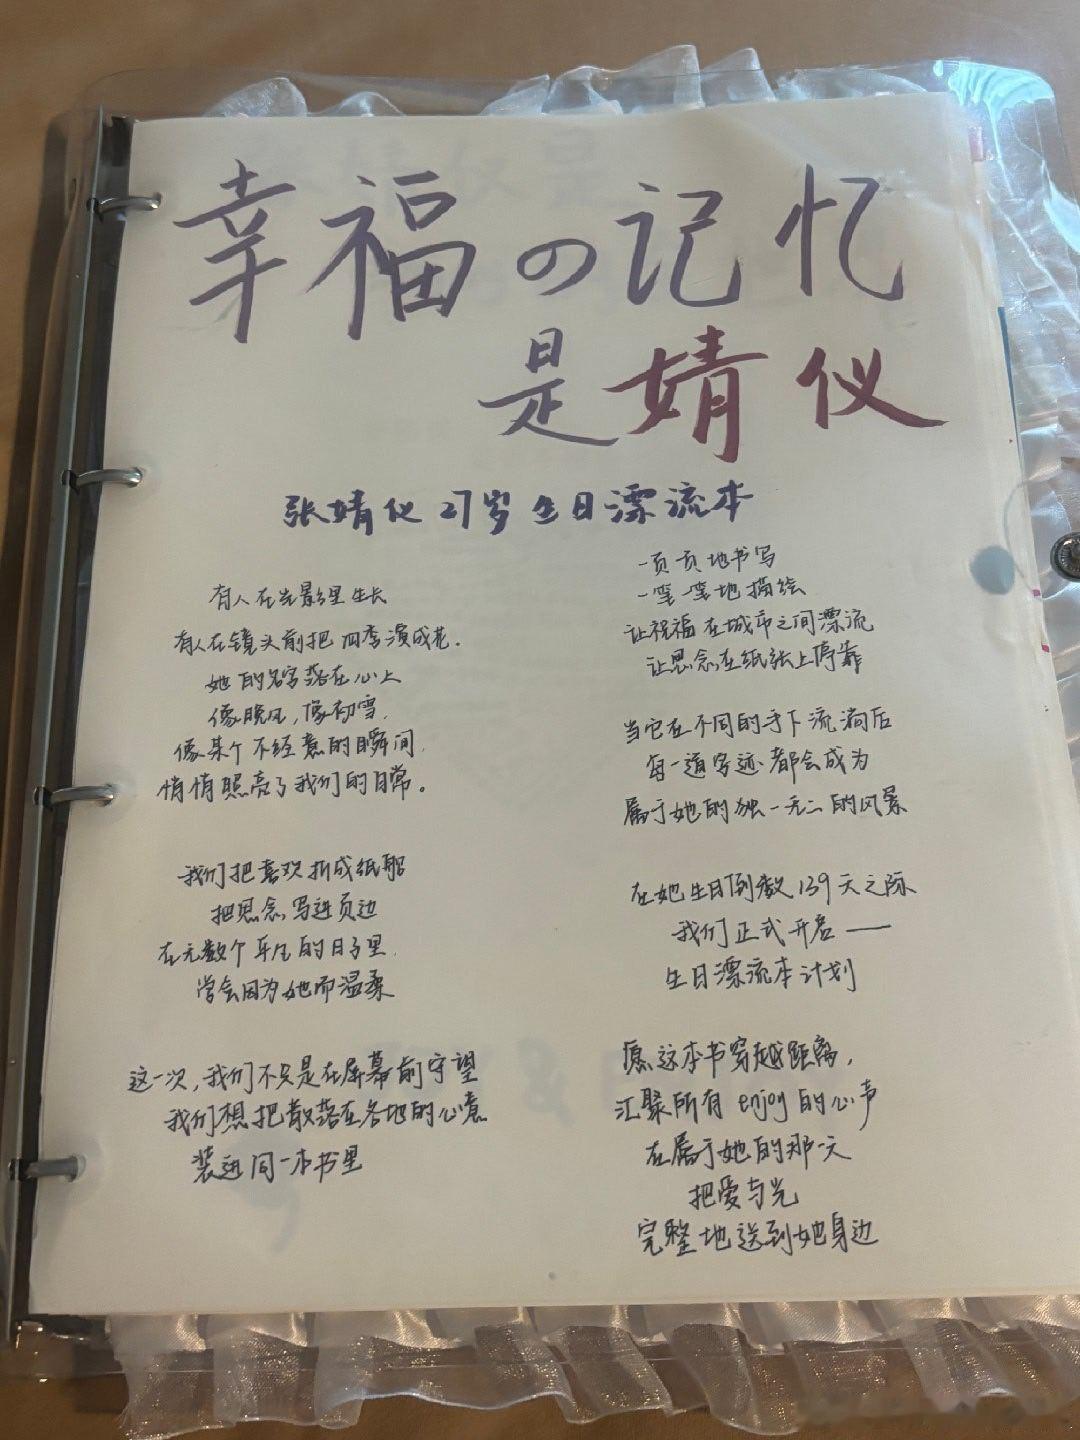 幸福の记忆
是婧仪
张婧仪27岁生日漂流本
有人在光影里生长
有人在镜头前把四季演成花.
她的名字落在心上
像晚风,像初雪.
像某个不经意的瞬间.
悄悄照亮了我们的日常。
我们把喜欢折成纸船
把思念写进页边
在无数个平凡的日子里.
学会因为她而温柔
这一次,我们不只是在屏幕前守望
我们想把散落在各地的心意
装进同一本书里
一页页地书写
一笔一笔地描绘
让祝福在城市之间漂流
让思念在纸张上停靠
当它在不同的手下流淌后
每一道字迹都会成为
属于她的独一无二的风景
在她生日倒数139天之际
我们正式开启——
生日漂流本计划
愿这本书穿越距离,
汇聚所有enjoy的心声
在属于她的那一天
把爱与光
完整地送到她身边